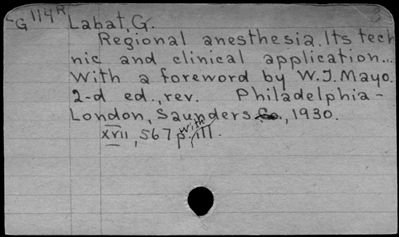 G 114R Labat, G.
Regional anesthesia. Its tech
nic and clinical application...
With a foreword by W.J. Mayo.
2-d ed., rev. Philadelphia-
London, Saunders Co., 1930.
XVII, 567 p. with ill.